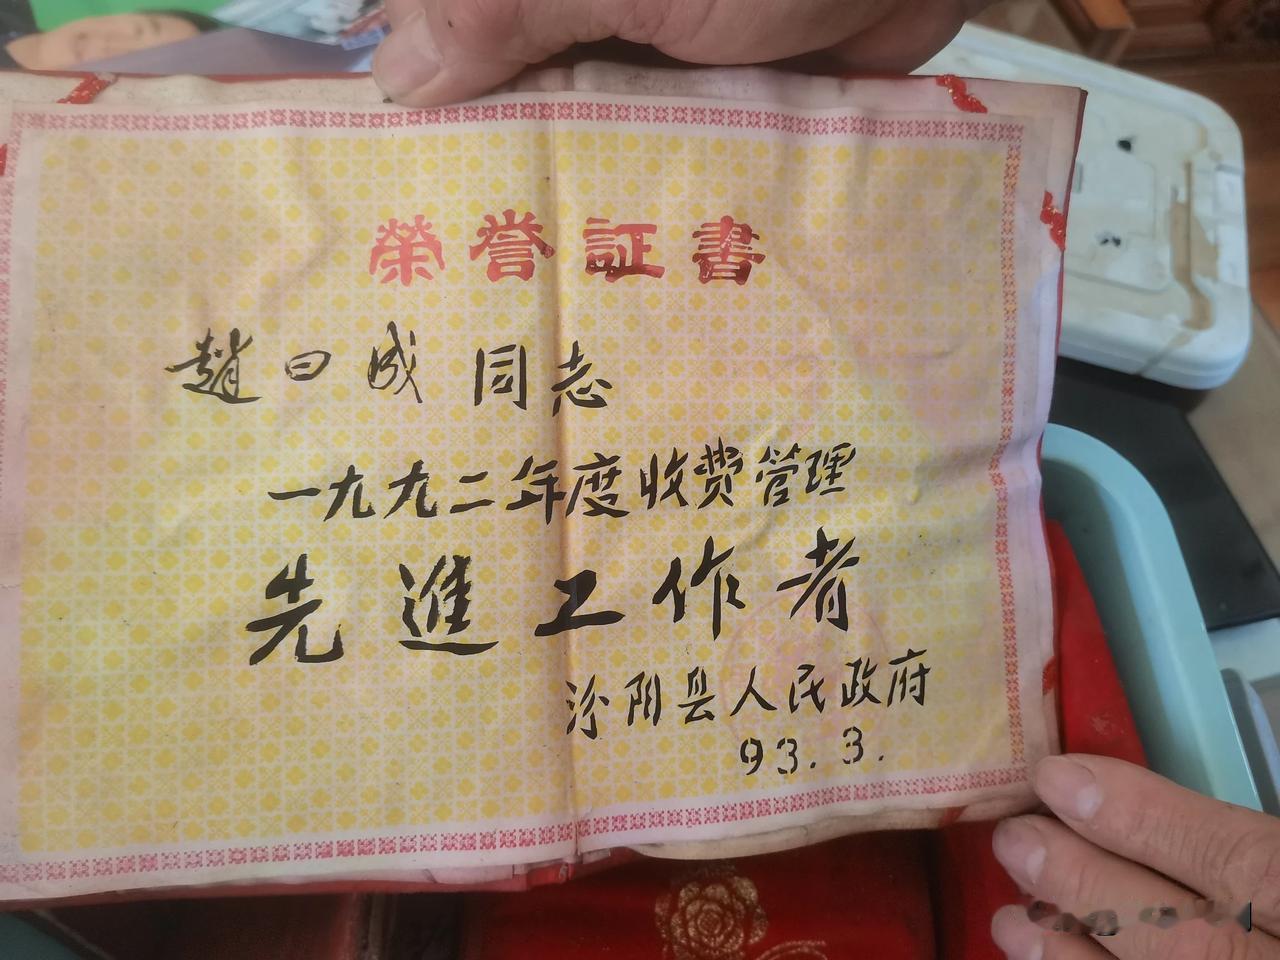 榮誉証書
趙曰成同志
一九九二年度收费管理
先進工作者
汾阳县人民政府
93.3.